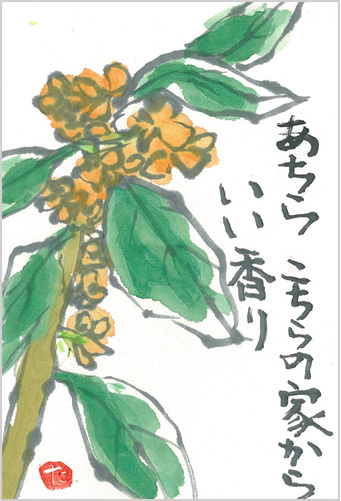 あちら こちらの家から
いい香り